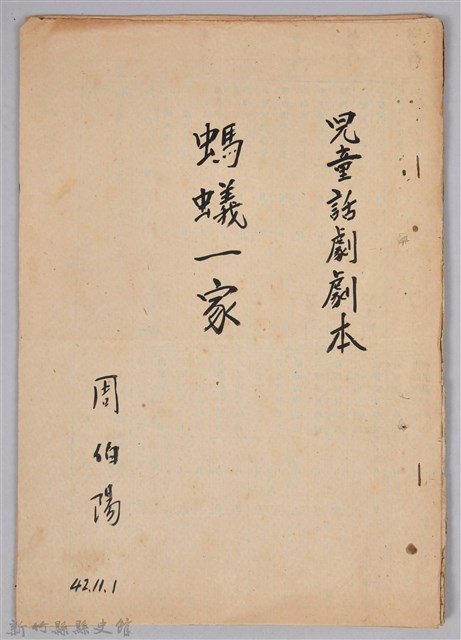 児童話劇劇本
螞蟻一家
周伯陽
42.11.1
新竹縣縣史館